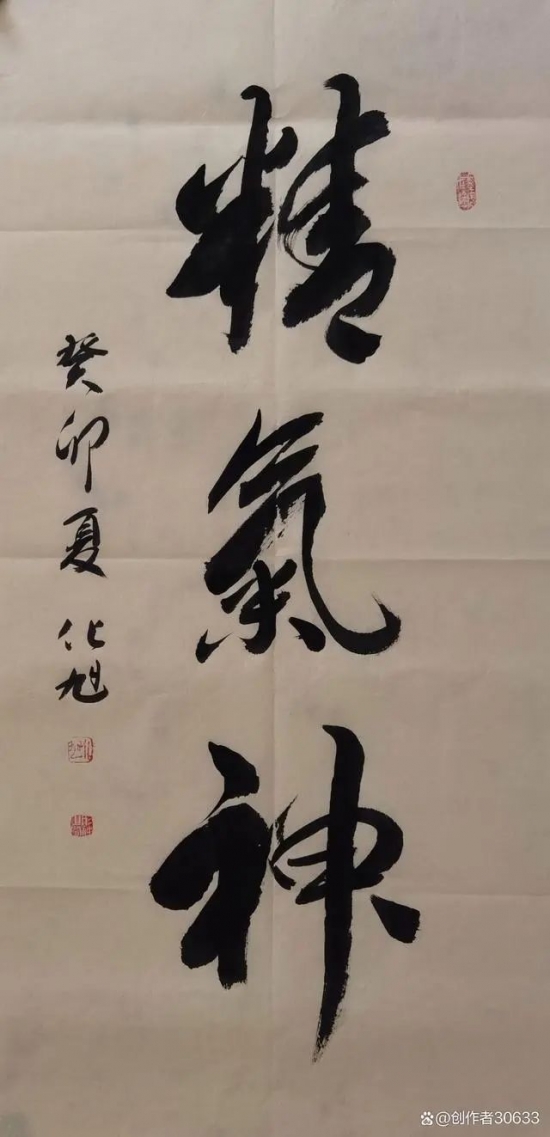 精氣神
癸卯夏 化旭
@创作者30633